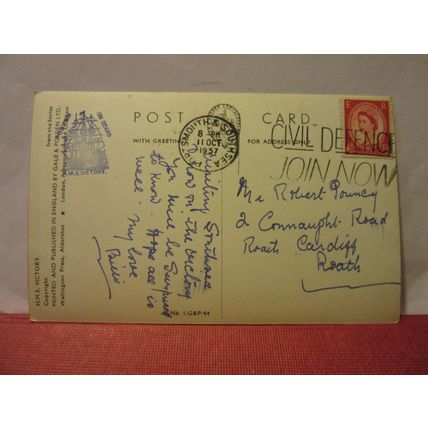 POST CARD
WITH GREETINGS
FOR ADDRESS ONLY
PORTSMOUTH & SOUTHSEA
8 PM
11 OCT
1957
CIVIL DEFENCE
JOIN NOW
E R
ON BOARD
H.M.S. VICTORY.
from the Series
London,
H.M.S. VICTORY.
Copyright
PRINTED AND PUBLISHED IN ENGLAND BY GALE & POLDEN LTD.
Wellington Press, Aldershot
No. 1.G&P/44
Visiting Southsea
now on the Victory
You will be Surprised
to know. Hope all is
well. My Love
Mr Robert Pouncy
2 Connaught Road
Roath Cardiff
Roath